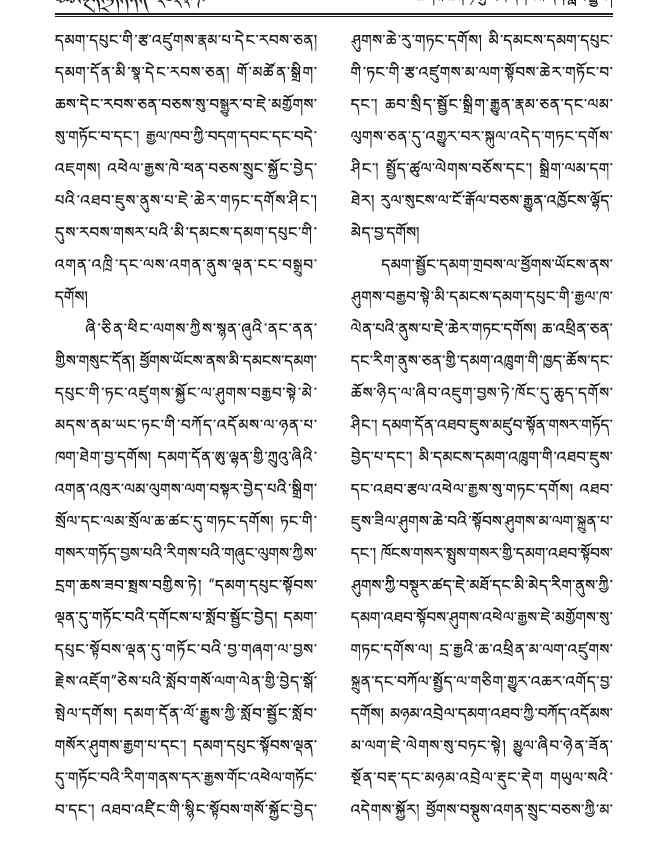 དམག་དཔུང་གི་རྩ་འཛུགས་རྣམ་པ་དེང་རབས་ཅན།
དམག་དོན་མི་སྣ་དེང་རབས་ཅན། གོ་མཚོན་སྒྲིག་
ཆས་དེང་རབས་ཅན་བཅས་སུ་བསྒྱུར་བ་ཇེ་མགྱོགས་
སུ་གཏོང་བ་དང་། རྒྱལ་ཁབ་ཀྱི་བདག་དབང་དང་བདེ་
འཇགས། འཕེལ་རྒྱས་ཁེ་ཕན་བཅས་སྲུང་སྐྱོང་བྱེད་
པའི་འཐབ་ཇུས་ནུས་པ་ཇེ་ཆེར་གཏང་དགོས་ཤིང་།
དུས་རབས་གསར་པའི་མི་དམངས་དམག་དཔུང་གི་
འགན་འཁྲི་དང་ལས་འགན་ནུས་ལྡན་ངང་བསྒྲུབ་
དགོས།
ཞི་ཅིན་ཕིང་ལགས་ཀྱིས་སྙན་ཞུའི་ནང་ནན་
གྱིས་གསུང་དོན། ཕྱོགས་ཡོངས་ནས་མི་དམངས་དམག་
དཔུང་གི་ཏང་འཛུགས་སྐྱོང་ལ་ཤུགས་བརྒྱབ་སྟེ་མེ་
མདས་ནམ་ཡང་ཏང་གི་བཀོད་འདོམས་ལ་ཉན་པ་
ཁག་ཐེག་བྱ་དགོས། དམག་དོན་ཨུ་ལྷན་གྱི་ཀྲུའུ་ཞིའི་
འགན་འཁུར་ལམ་ལུགས་ལག་བསྟར་བྱེད་པའི་སྒྲིག་
སྲོལ་དང་ལམ་སྲོལ་ཆ་ཚང་དུ་གཏང་དགོས། ཏང་གི་
གསར་གཏོད་བྱས་པའི་རིགས་པའི་གཞུང་ལུགས་ཀྱིས་
དྲག་ཆས་ཟབ་སྤྲས་བགྱིས་ཏེ། “དམག་དཔུང་སྟོབས་
ལྡན་དུ་གཏོང་བའི་དགོངས་པ་སློབ་སྦྱོང་བྱེད། དམག་
དཔུང་སྟོབས་ལྡན་དུ་གཏོང་བའི་བྱ་གཞག་ལ་བྱས་
རྗེས་འཇོག”ཅེས་པའི་སློབ་གསོ་ལག་ལེན་གྱི་བྱེད་སྒོ་
སྤེལ་དགོས། དམག་དོན་ལོ་རྒྱུས་ཀྱི་སློབ་སྦྱོང་སློབ་
གསོར་ཤུགས་རྒྱག་པ་དང་། དམག་དཔུང་སྟོབས་ལྡན་
དུ་གཏོང་བའི་རིག་གནས་དར་རྒྱས་གོང་འཕེལ་གཏོང་
བ་དང་། འཐབ་འཛིང་གི་སྙིང་སྟོབས་གསོ་སྐྱོང་བྱེད་
ཤུགས་ཆེ་རུ་གཏང་དགོས། མི་དམངས་དམག་དཔུང་
གི་ཏང་གི་རྩ་འཛུགས་མ་ལག་སྟོབས་ཆེར་གཏོང་བ་
དང་། ཆབ་སྲིད་སྦྱོང་སྒྲིག་རྒྱུན་རྣམ་ཅན་དང་ལམ་
ལུགས་ཅན་དུ་འགྱུར་བར་སྐུལ་འདེད་གཏང་དགོས་
ཤིང་། སྤྱོད་ཚུལ་ལེགས་བཅོས་དང་། སྒྲིག་ལམ་དག་
ཐེར། རུལ་སུངས་ལ་ངོ་རྒོལ་བཅས་རྒྱུན་འཁྱོངས་ལྷོད་
མེད་བྱ་དགོས།
དམག་སྦྱོང་དམག་གྲབས་ལ་ཕྱོགས་ཡོངས་ནས་
ཤུགས་བརྒྱབ་སྟེ་མི་དམངས་དམག་དཔུང་གི་རྒྱལ་ཁ་
ལེན་པའི་ནུས་པ་ཇེ་ཆེར་གཏང་དགོས། ཆ་འཕྲིན་ཅན་
དང་རིག་ནུས་ཅན་གྱི་དམག་འཁྲུག་གི་ཁྱད་ཆོས་དང་
ཆོས་ཉིད་ལ་ཞིབ་འཇུག་བྱས་ཏེ་ཁོང་དུ་ཆུད་དགོས་
ཤིང་། དམག་དོན་འཐབ་ཇུས་མཛུབ་སྟོན་གསར་གཏོད་
བྱེད་པ་དང་། མི་དམངས་དམག་འཁྲུག་གི་འཐབ་ཇུས་
དང་འཐབ་རྩལ་འཕེལ་རྒྱས་སུ་གཏང་དགོས། འཐབ་
ཇུས་ཟིལ་ཤུགས་ཆེ་བའི་སྟོབས་ཤུགས་མ་ལག་སྐྲུན་པ་
དང་། ཁོངས་གསར་སྤུས་གསར་གྱི་དམག་འཐབ་སྟོབས་
ཤུགས་ཀྱི་བསྡུར་ཚད་ཇེ་མཐོ་དང་མི་མེད་རིག་ནུས་ཀྱི་
དམག་འཐབ་སྟོབས་ཤུགས་འཕེལ་རྒྱས་ཇེ་མགྱོགས་སུ་
གཏང་དགོས་ལ། དྲ་རྒྱའི་ཆ་འཕྲིན་མ་ལག་འཛུགས་
སྐྲུན་དང་བཀོལ་སྤྱོད་ལ་གཅིག་གྱུར་འཆར་འགོད་བྱ་
དགོས། མཉམ་འབྲེལ་དམག་འཐབ་ཀྱི་བཀོད་འདོམས་
མ་ལག་ཇེ་ལེགས་སུ་བཏང་སྟེ། མྱུལ་ཞིབ་ཉེན་ཟོན་
སྔོན་བརྡ་དང་མཉམ་འབྲེལ་རྡུང་རྡེག གཡུལ་སའི་
འདེགས་སྐྱོར། ཕྱོགས་བསྡུས་འགན་སྲུང་བཅས་ཀྱི་མ་